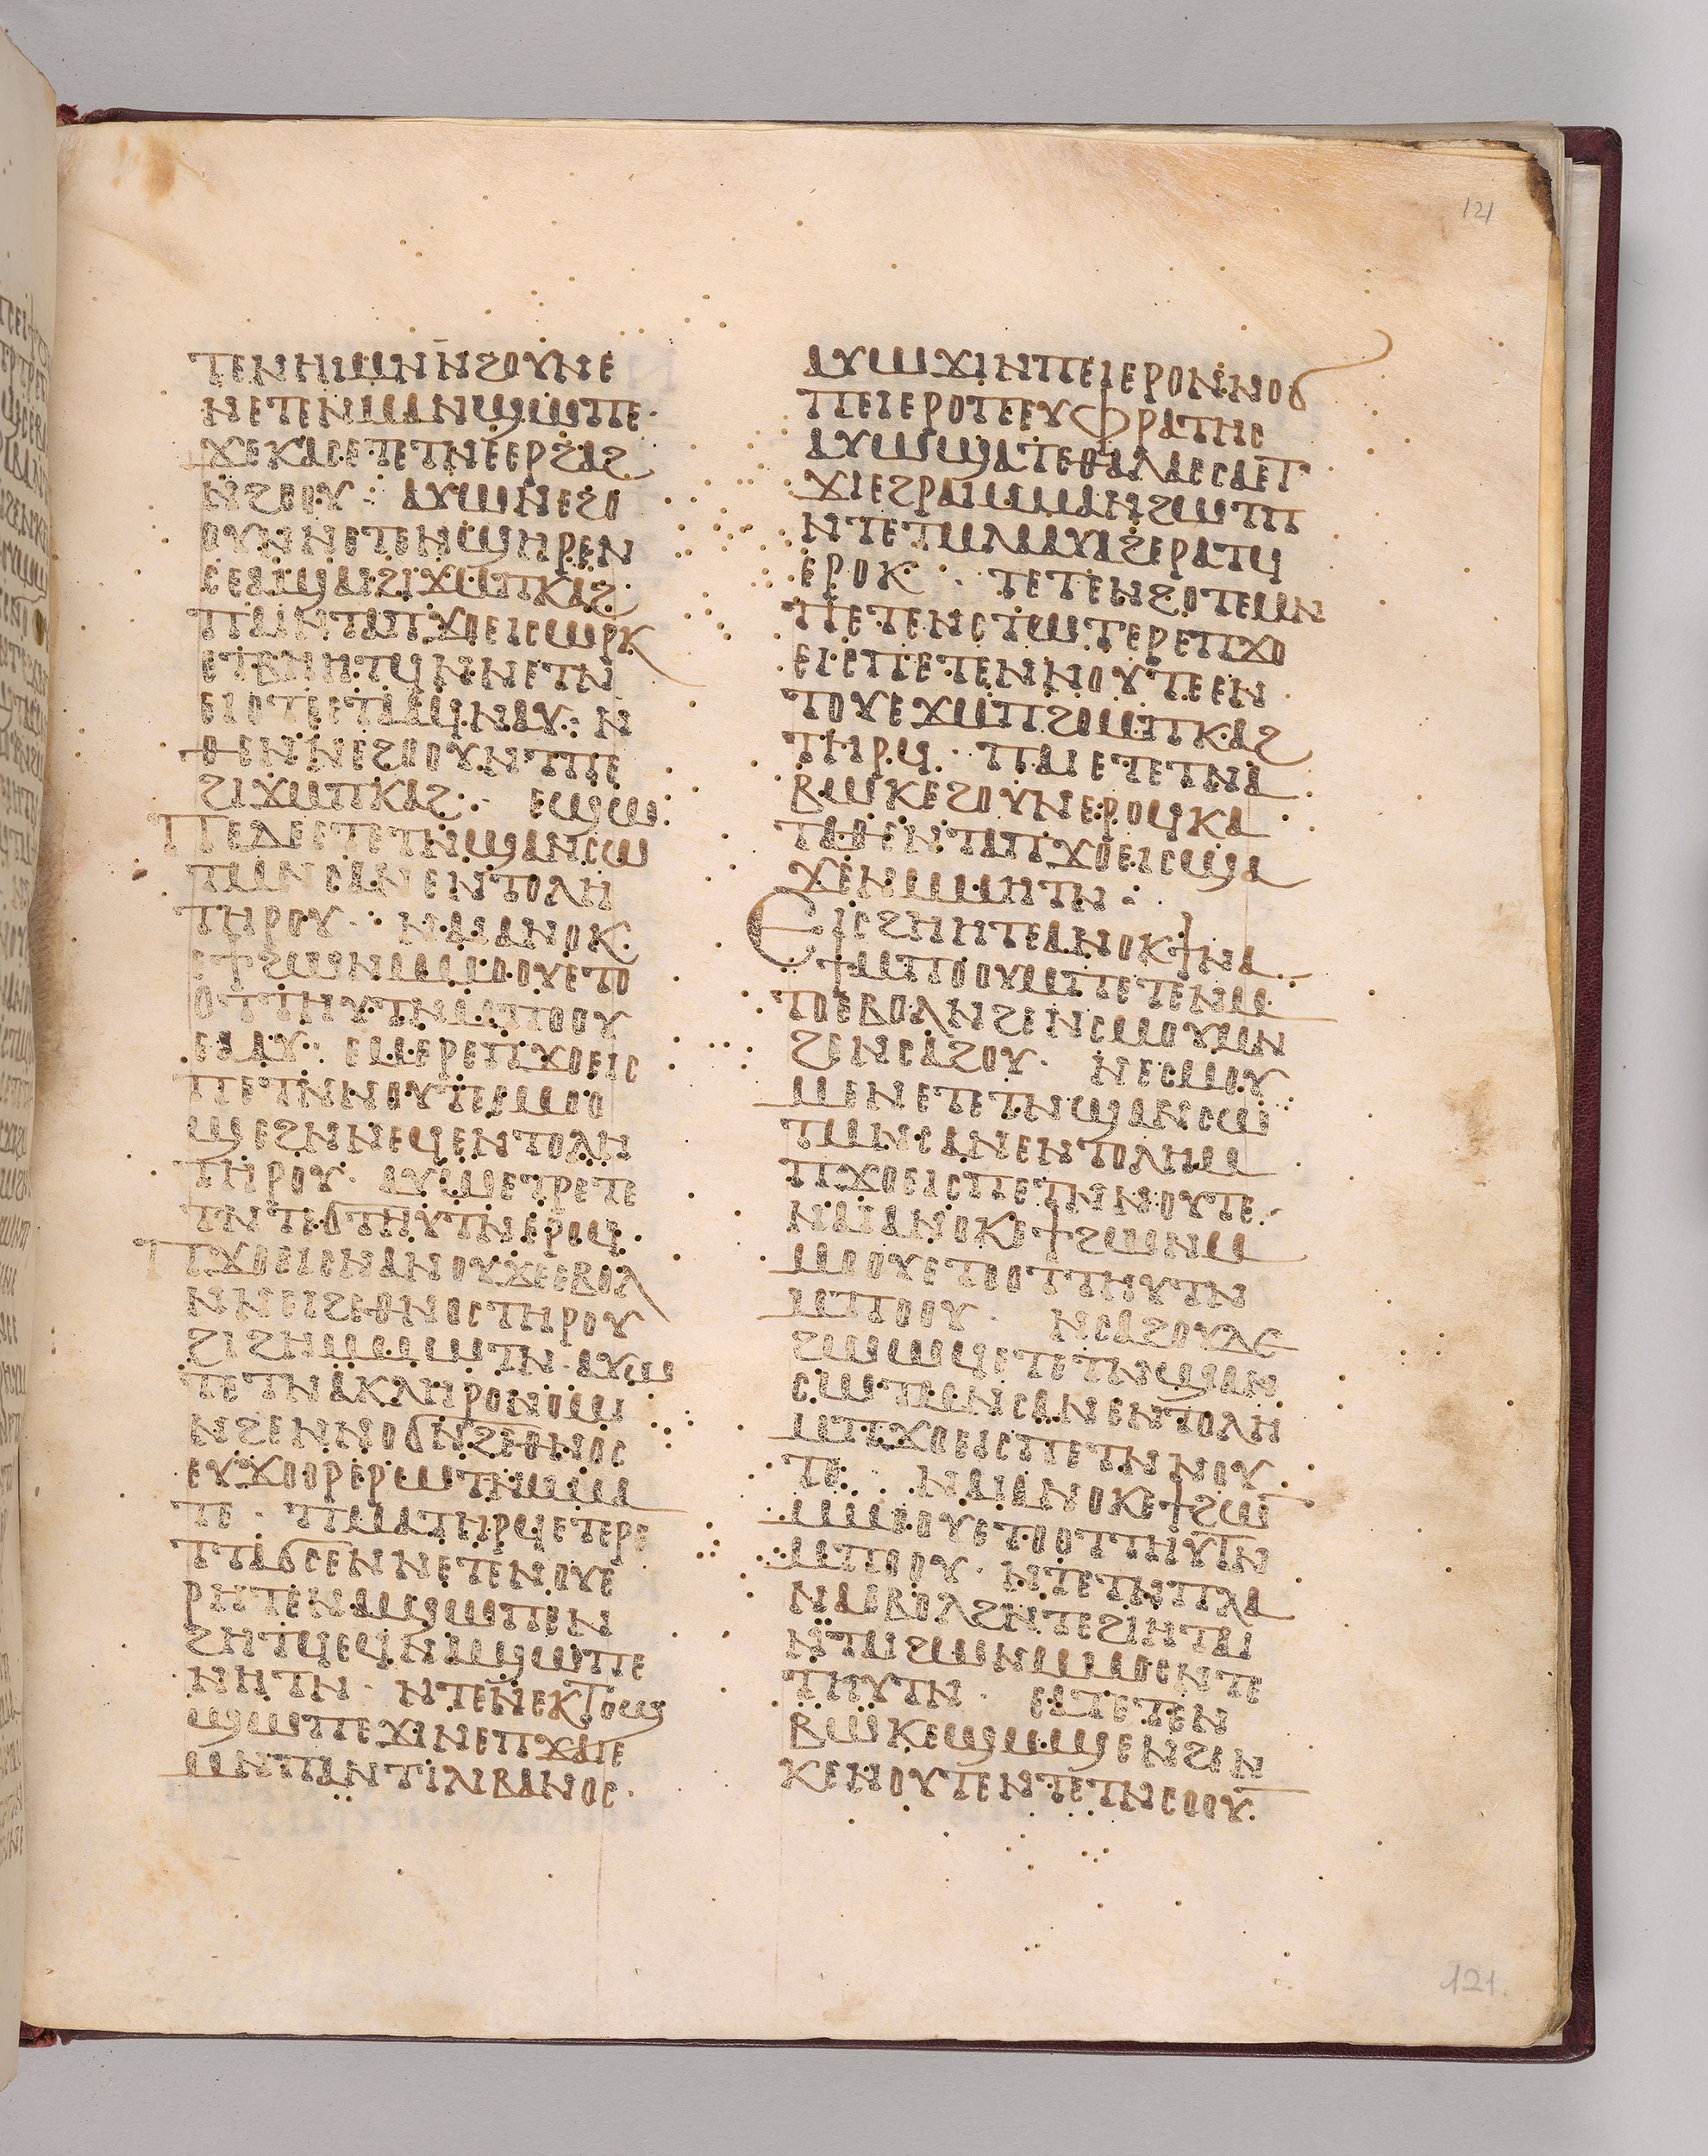 ⲧⲉⲛⲏⲓⲙⲛⲛϩⲟⲩⲛⲉ
ⲛⲉⲧⲉⲛⲙⲁⲛϣⲱⲡⲉ·
ϫⲉⲕⲁⲥⲉⲧⲉⲧⲛⲉⲉⲣϩⲁϩ
ⲛϩⲟⲟⲩ· ⲁⲩⲱⲛⲉϩⲟ
ⲟⲩⲛⲛⲉⲧⲉⲛϣⲏⲣⲉⲛ
ⲥⲉⲁϣⲁⲓϩⲓϫⲙⲡⲕⲁϩ·
ⲡⲁⲓⲛⲧⲁⲡϫⲟⲉⲓⲥⲱⲣⲕ
ⲉⲧⲃⲏⲏⲧϥⲛⲛⲉⲧⲛ
ⲉⲓⲟⲧⲉⲉⲧⲁⲁϥⲛⲁⲩ: ⲛ
ⲑⲉⲛⲛⲉϩⲟⲟⲩⲛⲧⲡⲉ
ϩⲓϫⲙⲡⲕⲁϩ: ⲉϣⲱ
ⲡⲉⲇⲉⲉⲧⲉⲧⲛϣⲁⲛⲥⲱ
ⲧⲙⲛⲥⲁⲛⲉⲛⲧⲟⲗⲏ
ⲧⲏⲣⲟⲩ· ⲛⲁⲓⲁⲛⲟⲕ
ⲉϯϩⲱⲛⲙⲙⲟⲟⲩⲉⲧⲟ
ⲟⲧⲧⲏⲩⲧⲛⲙⲡⲟⲟⲩ
ⲉⲁⲁⲩ· ⲉⲙⲉⲣⲉⲡϫⲟⲉⲓⲥ
ⲡⲉⲧⲛⲛⲟⲩⲧⲉⲉⲙⲟⲟ
ϣⲉϩⲛⲛⲉϥⲉⲛⲧⲟⲗⲏ
ⲧⲏⲣⲟⲩ· ⲁⲩⲱⲉⲧⲣⲉⲧⲉ
ⲧⲛⲧⲉϭⲧⲏⲩⲧⲛⲉⲣⲟϥ·
ⲡϫⲟⲉⲓⲥⲛⲁⲛⲟⲩϫⲉⲉⲃⲟⲗ
ⲛⲛⲉⲓϩⲉⲑⲛⲟⲥⲧⲏⲣⲟⲩ
ϩⲓϩⲏⲙⲙⲱⲧⲛ·ⲁⲩⲱ
ⲧⲉⲧⲛⲁⲕⲗⲏⲣⲟⲛⲟⲙⲓ
ⲛϩⲉⲛⲛⲟϭⲛϩⲉⲑⲛⲟⲥ
ⲉⲩϫⲟⲟⲣⲉⲣⲱⲧⲛⲙⲙⲁ
ⲧⲉ· ⲡⲙⲁⲧⲏⲣϥⲉⲧⲉⲣⲉ
ⲡⲧⲁϭⲥⲉⲛⲛⲉⲧⲉⲛⲟⲩⲉ
ⲣⲏⲧⲉⲛⲁϣⲱⲡⲉⲛ
ϩⲏⲧϥⲉϥⲛⲁϣⲱⲡⲉ
ⲛⲏⲧⲛ· ⲛⲧⲉⲛⲉⲕⲧⲟϣ
ϣⲱⲡⲉϫⲓⲛⲉⲡϫⲁⲓⲉ
ⲙⲛⲡⲁⲛⲧⲓⲗⲓⲃⲁⲛⲟⲥ·
ⲁⲩⲱϫⲓⲛⲡⲉⲓⲉⲣⲟⲛⲛⲟϭ
ⲡⲉⲓⲉⲣⲟⲡⲉⲩⲫⲣⲁⲧⲏⲥ
ⲁⲩⲱϣⲁⲧⲉⲑⲁⲗⲁⲥⲥⲁⲉⲧ
ϫⲓⲉϩⲣⲁⲓⲙⲙⲁⲛϩⲱⲧⲡ
ⲛⲧⲉⲧⲙⲗⲁⲁⲩⲁϩⲉⲣⲁⲧϥ
ⲉⲣⲟⲕ· ⲧⲉⲧⲉⲛϩⲟⲧⲉⲙⲛ
ⲡⲉⲧⲉⲛⲥⲧⲱⲧⲉⲣⲉⲡϫⲟ
ⲉⲓⲥⲡⲉⲧⲉⲛⲛⲟⲩⲧⲉⲉⲛ
ⲧⲟⲩⲉϫⲙⲡϩⲟⲙⲡⲕⲁϩ
ⲧⲏⲣϥ· ⲡⲁⲓⲉⲧⲉⲧⲛⲁ
ⲃⲱⲕⲉϩⲟⲩⲛⲉⲣⲟϥⲕⲁ
ⲧⲁⲑⲉⲛⲧⲁⲡϫⲟⲉⲓⲥϣⲁ
ϫⲉⲛⲙⲙⲏⲧⲛ:
ⲉⲓⲥϩⲏⲏⲧⲉⲁⲛⲟⲕϯⲛⲁ
ϯⲙⲡⲟⲟⲩⲙⲡⲉⲧⲉⲛⲙ
ⲧⲟⲉⲃⲟⲗⲛϩⲉⲛⲥⲙⲟⲩⲙⲛ
ϩⲉⲛⲥⲁϩⲟⲩ· ⲛⲉⲥⲙⲟⲩ
ⲙⲉⲛⲉⲧⲉⲧⲛϣⲁⲛⲥⲱ
ⲧⲙⲛⲥⲁⲛⲉⲛⲧⲟⲗⲏⲙ
ⲡϫⲟⲉⲓⲥⲡⲉⲧⲛⲛⲟⲩⲧⲉ·
ⲛⲁⲓⲁⲛⲟⲕⲉϯϩⲱⲛⲙ
ⲙⲟⲟⲩⲉⲧⲟⲟⲧⲧⲏⲩⲧⲛ
ⲙⲡⲟⲟⲩ· ⲛⲥⲁϩⲟⲩⲇⲉ
ϩⲱⲱϥⲉⲧⲉⲧⲛϣⲁⲛ
ⲥⲱⲧⲙⲛⲥⲁⲛⲉⲛⲧⲟⲗⲏ
ⲙⲡϫⲟⲉⲓⲥⲡⲉⲧⲛⲛⲟⲩ
ⲧⲉ· ⲛⲁⲓⲁⲛⲟⲕⲉϯϩⲱ
ⲙⲙⲟⲟⲩⲉⲧⲟⲟⲧⲧⲏⲩⲧⲛ
ⲙⲡⲟⲟⲩ· ⲛⲧⲉⲧⲛⲡⲗⲁ
ⲛⲁⲉⲃⲟⲗϩⲛⲧⲉϩⲓⲏⲧⲁⲓ
ⲛⲧⲁⲓϩⲱⲛⲙⲙⲟⲥⲛⲧⲉ
ⲧⲏⲩⲧⲛ· ⲉⲁⲧⲉⲧⲉⲛ
ⲃⲱⲕⲉϣⲙϣⲉⲛϩⲉⲛ
ⲕⲉⲛⲟⲩⲧⲉⲛⲧⲉⲧⲛⲥⲟⲟⲩ
121
121